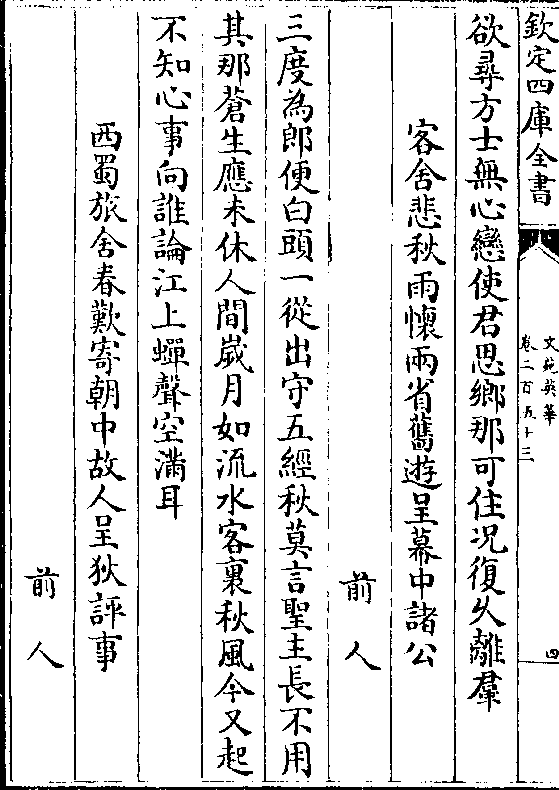 欽定四庫全書
文苑英華
卷二百五十三
四
欲尋方士無心戀使君思鄉那可住况復久離羣
客舍悲秋雨懷兩省舊遊呈幕中諸公
前人
三度為郎便白頭一從出守五經秋莫言聖主長不用
其那蒼生應未休人間嵗月如流水客裏秋風今又起
不知心事向誰論江上蟬聲空滿耳
西蜀旅舍春歎寄朝中故人呈狄評事
前人